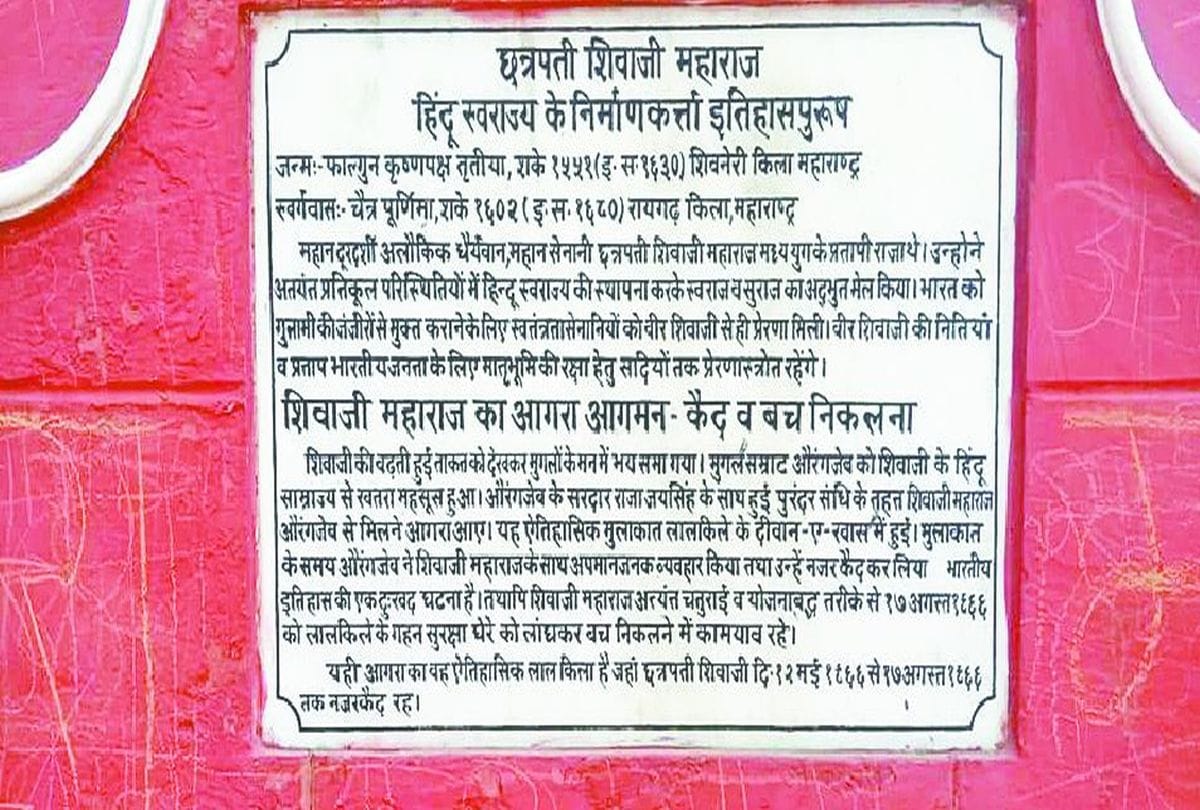 छत्रपती शिवाजी महाराज
हिंदू स्वराज्य के निर्माणकर्त्ता इतिहासपुरूष
जन्मः-फाल्गुन कृष्णपक्ष तृतीया, शके १५५१(इ. स.१६३०) शिवनेरी किला महाराष्ट्र
स्वर्गवासः- चैत्र पूर्णिमा,शके १६०२ ( इ. स. १६८०) रायगढ़ किला,महाराष्ट्र
महान दूरदर्शी अलौकिक धैर्यवान,महान सेनानी छत्रपती शिवाजी महाराज मध्ययुग के प्रतापी राजा थे। उन्होने
अतयंत प्रतिकूल परिस्थितियों में हिन्दू स्वराज्य की स्थापना करके स्वराज व सुराज का अदभुत मेल किया। भारत को
गुलामी की जंजीरों से मुक्त कराने के लिए स्वतंत्रता सेनानियों को वीर शिवाजी से ही प्रेरणा मिली। वीर शिवाजी की नितियां
व प्रताप भारतीय जनता के लिए मातृभूमि की रक्षा हेतु सदियों तक प्रेरणास्त्रोत रहेंगे।
शिवाजी महाराज का आगरा आगमन- कैद व बच निकलना
शिवाजी की बढ़ती हुई ताकत को देखकर मुगलों के मन में भय समा गया। मुगल सम्राट औरंगजेव को शिवाजी के हिंदू
साम्राज्य से खतरा महसूस हुआ। औरंगजेव के सरदार राजा जयसिंह के साथ हुई पुरंदर संधि के तहत्त शिवाजी महाराज
औरंगजेव से मिलने आगरा आए। यह ऐतिहासिक मुलाकात लालकिले के दीवान-ए-खास में हुई। मुलाकात
के समय औरंगजेव ने शिवाजी महाराज के साथ अपमानजनक व्यवहार किया तथा उन्हें नजर कैद कर लिया भारतीय
इतिहास की एक दुःखद घटना है। तथापि शिवाजी महाराज अत्यंत चतुराई व योजनाबद्ध तरीके से १७ अगस्त १६६६
को लालकिले के गहन सुरक्षा घेरे को लांघकर बच निकलने में कामयाव रहे।
यही आगरा का वह ऐतिहासिक लाल किला है जहां छत्रपती शिवाजी दि. १२ मई १६६६ से १७ अगस्त १६६६
तक नजरकैद रह।